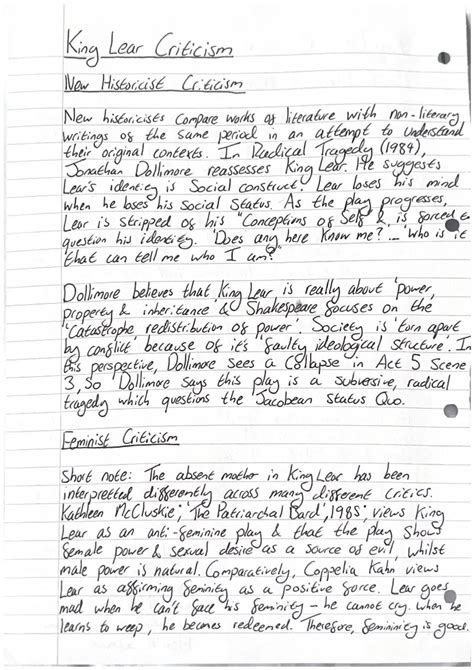 King Lear Criticism
New Historicist Criticism
New historicists compare works of literature with non-literary
writings of the same period in an attempt to understand
their original contexts. In Radical Tragedy (1984),
Jonathan Dollimore reassesses King Lear. He suggests
Lear's identity is Social construct. Lear loses his mind
when he loses his social status. As the play progresses,
Lear is stripped of his "Conceptions of Self" & is forced to
question his identity. 'Does any here know me?'...'who is it
'that can tell me who I am?'
Dollimore believes that King Lear is really about 'power,
property & inheritance' & Shakespeare focuses on the
'Catastrophe redistribution of power'. Society is 'torn apart
by conflict' because of it's 'faulty ideological structure'. In
this perspective, Dollimore sees a collapse in Act 5 Scene
3, so Dollimore says this play is a subversive, radical
tragedy which questions the Jacobean Status Quo.
Feminist Criticism
Short note: The absent mother in King Lear has been
interpretted differently across many different critics.
Kathleen McCluskie; 'The Patriarchal Bard', 1985: views King
Lear as an anti-feminine play & that the play shows
female power & sexual desire as a source of evil, whilst
male power is natural. Comparatively, Coppelia Kahn views
Lear as affirming feminity as a positive force. Lear goes
mad when he can't face his feminity - he cannot cry. When he
learns to weep, he becomes redeemed. Therefore, femininity is good.